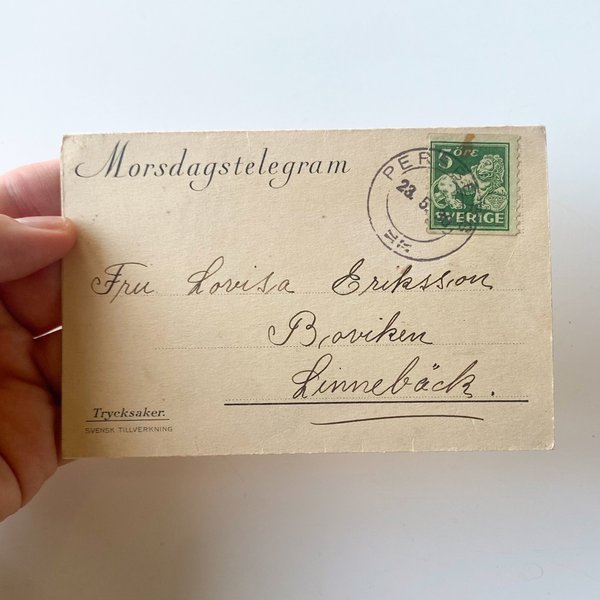 Morsdagstelegram
5 ÖRE
SVERIGE
23. 5.
Fru Lovisa Eriksson
Boviken
Linnebäck.
Trycksaker.
SVENSK TILLVERKNING